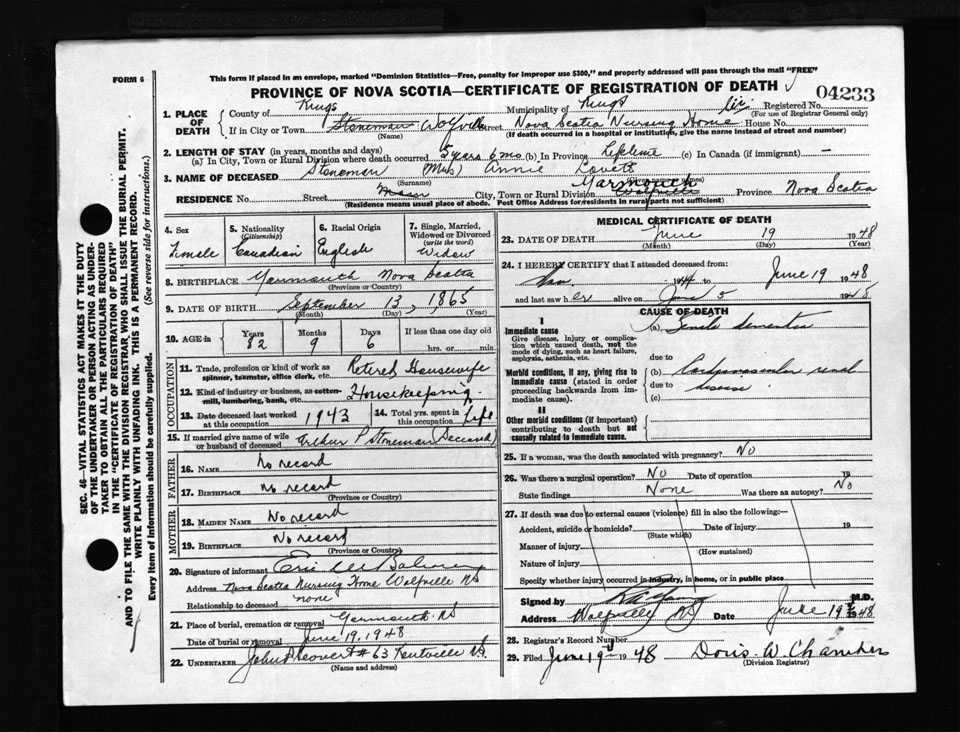 This form if placed in an envelope, marked "Dominion Statistics—Free, penalty for improper use $300," and properly addressed will pass through the mail "FREE"
FORM 6
PROVINCE OF NOVA SCOTIA—CERTIFICATE OF REGISTRATION OF DEATH
04233
1. PLACE OF DEATH
County of Kings
Municipality of Kings
Registered No.
(For use of Registrar General only)
If in City or Town Stoneman Wolfville Street Nova Scotia Nursing Home House No.
(Name) (If death occurred in a hospital or institution, give the name instead of street and number)
2. LENGTH OF STAY (in years, months and days)
(a) In City, Town or Rural Division where death occurred 5 years 6 mo (b) In Province Lifetime (c) In Canada (if immigrant) —
3. NAME OF DECEASED Stoneman (Mrs) Annie Lovett
(Surname) (Given names)
RESIDENCE No. Street Main City, Town or Rural Division Yarmouth Wolfville Province Nova Scotia
(Residence means usual place of abode. Post Office Address for residents in rural parts not sufficient)
4. Sex
Female
5. Nationality
(Citizenship)
Canadian
6. Racial Origin
English
7. Single, Married, Widowed or Divorced
(write the word)
Widow
8. BIRTHPLACE Yarmouth Nova Scotia
(Province or Country)
9. DATE OF BIRTH September 13, 1865
(Month) (Day) (Year)
10. AGE in Years Months Days If less than one day old
82 9 6 hrs. or min.
OCCUPATION
11. Trade, profession or kind of work as spinner, teamster, office clerk, etc. Retired Housewife
12. Kind of industry or business, as cotton-mill, lumbering, bank, etc. Housekeeping
13. Date deceased last worked at this occupation 1943
14. Total yrs. spent in this occupation Life
15. If married give name of wife or husband of deceased Arthur P Stoneman (Second)
FATHER
16. NAME No record
17. BIRTHPLACE No record
(Province or Country)
MOTHER
18. MAIDEN NAME No record
19. BIRTHPLACE No record
(Province or Country)
20. Signature of informant Eric
Address Nova Scotia Nursing Home Wolfville NS
Relationship to deceased none
21. Place of burial, cremation or removal Yarmouth NS
Date of burial or removal June 19, 1948
22. UNDERTAKER John # 63 Kentville NS
(Name and address)
MEDICAL CERTIFICATE OF DEATH
23. DATE OF DEATH June 19 1948
(Month) (Day) (Year)
24. I HEREBY CERTIFY that I attended deceased from:
Jan 1944 to June 19 1948
and last saw her alive on June 5 1948
CAUSE OF DEATH
I
Immediate cause
Give disease, injury or complication which caused death, not the mode of dying, such as heart failure, asphyxia, asthenia, etc.
(a) Senile dementia
due to
Morbid conditions, if any, giving rise to immediate cause (stated in order proceeding backwards from immediate cause).
(b) Cardiovascular renal
due to disease
(c)
II
Other morbid conditions (if important) contributing to death but not causally related to immediate cause.
25. If a woman, was the death associated with pregnancy? No
26. Was there a surgical operation? No Date of operation 19
State findings None Was there an autopsy? No
27. If death was due to external causes (violence) fill in also the following:—
Accident, suicide or homicide? Date of injury 19
(State which)
Manner of injury
(How sustained)
Nature of injury
Specify whether injury occurred in industry, in home, or in public place
Signed by M.D.
Address Wolfville NS Date June 19 1948
28. Registrar's Record Number
29. Filed June 19th 1948 Doris W. Chambers
(Division Registrar)
SEC. 46—VITAL STATISTICS ACT MAKES IT THE DUTY
OF THE UNDERTAKER OR PERSON ACTING AS UNDER-
TAKER TO OBTAIN ALL THE PARTICULARS REQUIRED
IN THE "CERTIFICATE OF REGISTRATION OF DEATH"
AND TO FILE THE SAME WITH THE DIVISION REGISTRAR, WHO SHALL ISSUE THE BURIAL PERMIT.
WRITE PLAINLY WITH UNFADING INK. THIS IS A PERMANENT RECORD.
Every item of information should be carefully supplied. (See reverse side for instructions.)